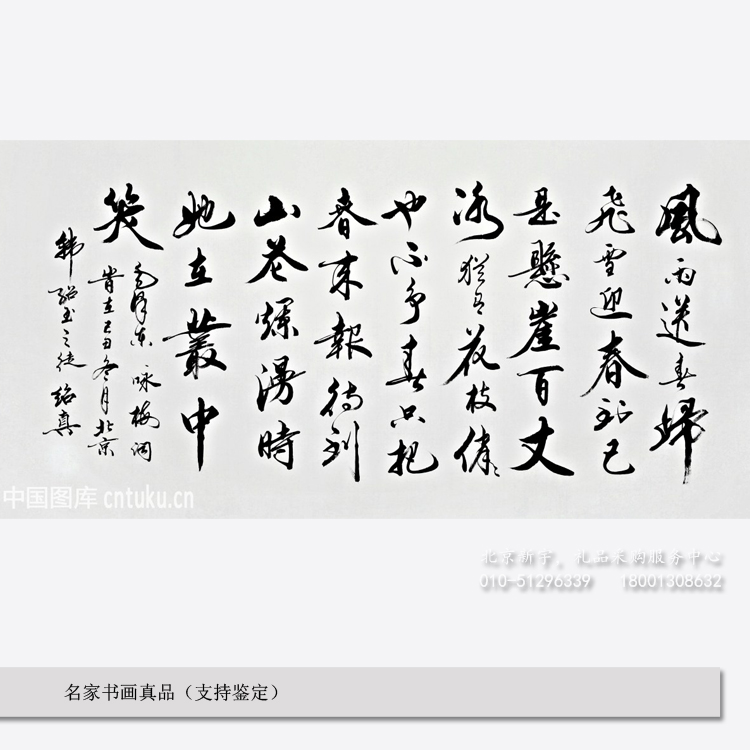 風雨送春歸
飛雪迎春到已
是懸崖百丈
冰猶有花枝俏〻
也不争春只把
春来報待到
山花爛漫時
她在叢中
笑
毛泽东咏梅词
在己丑冬月北京
韩绍玉之徒绍真
中国图库 cntuku.cn
北京新宇，礼品采购服务中心
010-51296339 18001308632
名家书画真品（支持鉴定）